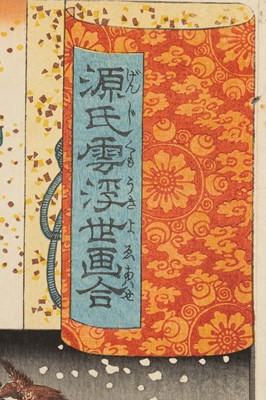 源氏雲浮世画合
げんじくもうきよゑあはせ